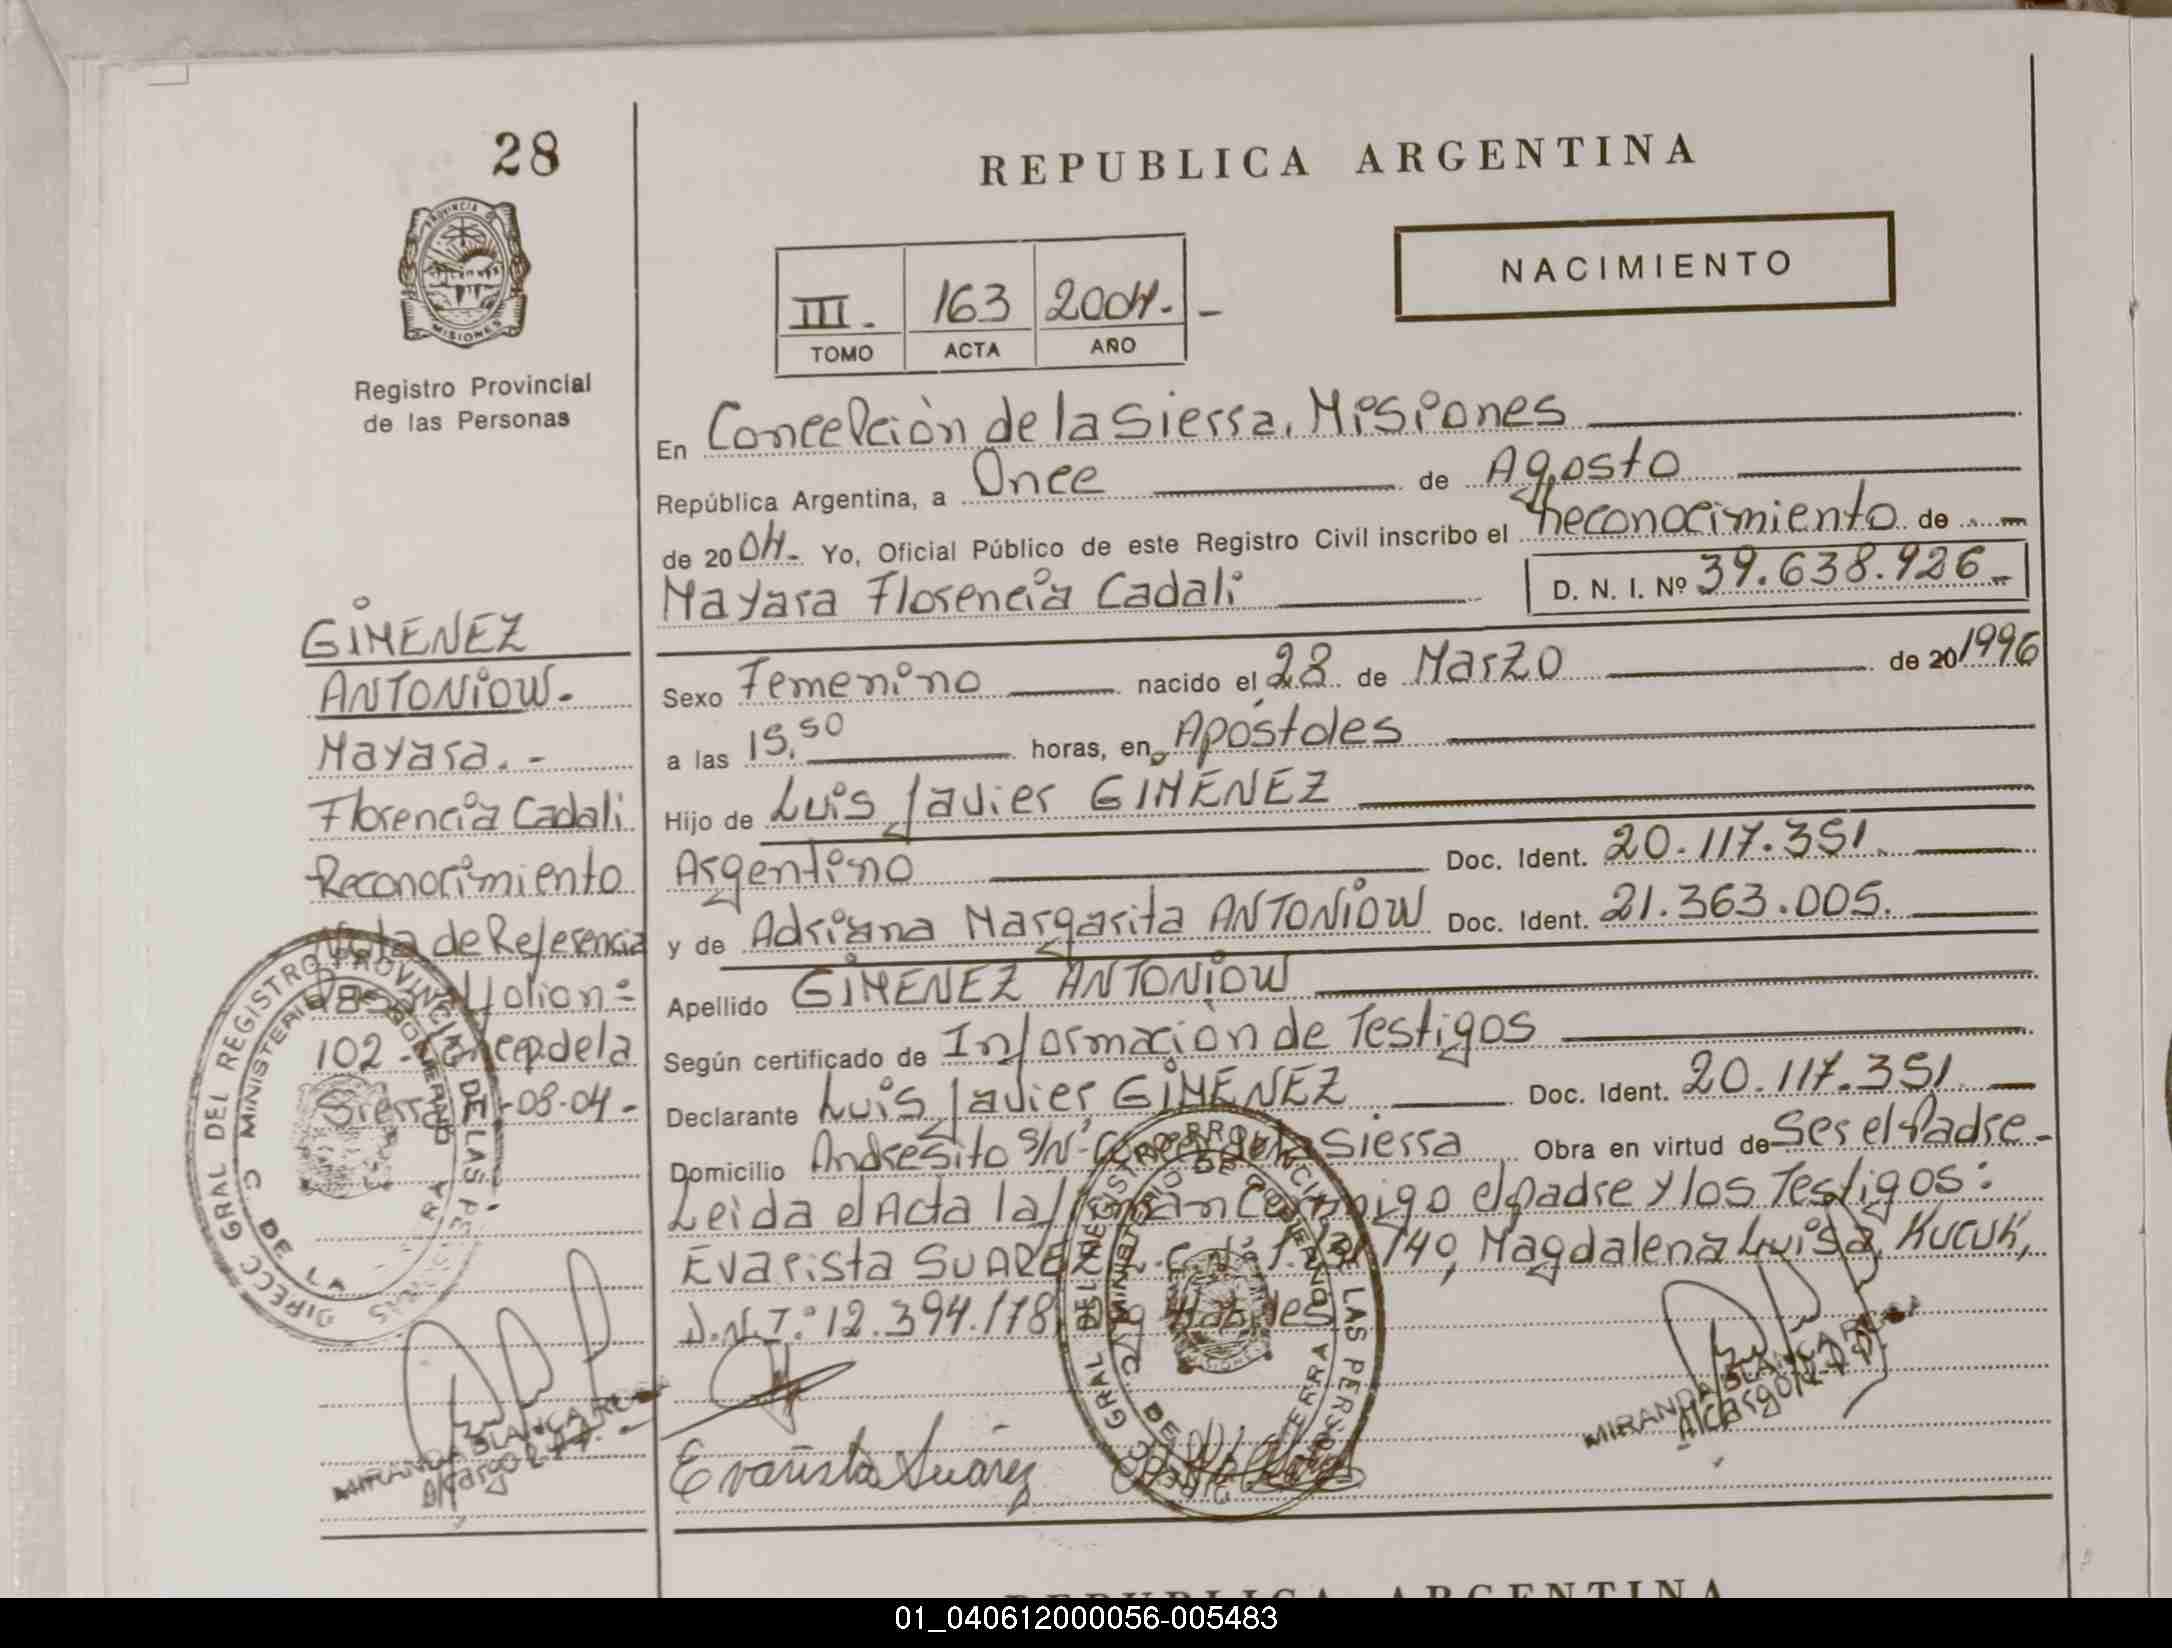 28
PROVINCIA DE
MISIONES
Registro Provincial
de las Personas
REPUBLICA ARGENTINA
NACIMIENTO
III. 163 2004. -
TOMO ACTA AÑO
En Concepción de la Sierra, Misiones
República Argentina, a Once de Agosto
de 2004. Yo, Oficial Público de este Registro Civil inscribo el reconocimiento de
Mayara Florencia Cadali D. N. I. Nº 39.638.926
Sexo Femenino nacido el 28 de Marzo de 20 1996
a las 15,50 horas, en Apóstoles
Hijo de Luis Javier GIMENEZ
Argentino Doc. Ident. 20.117.351.
y de Adriana Margarita ANTONIOW Doc. Ident. 21.363.005.
Apellido GIMENEZ ANTONIOW
Según certificado de Información de Testigos
Declarante Luis Javier GIMENEZ Doc. Ident. 20.117.351
Domicilio Andresito s/Nº Sierra Obra en virtud de Ser el Padre-
Leida el Acta la el padre y los Testigos:
Evarista SUAREZ 140, Magdalena Luisa KUCUK,
D.N.I.: 12.394.178
Evarista Suárez
MIRANDA BLANCA ROSA
GIMENEZ
ANTONIOW.-
Mayara.-
Florencia Cadali
Reconocimiento
Nota de Referencia
Folion=
102 de la
Sierra -08-04-
MIRANDA BLANCA ROSA
DIRECC GRAL DEL REGISTRO PROVINCIAL DE LAS PERSONAS
MINISTERIO DE GOBIERNO
DIRECC GRAL DEL REGISTRO PROVINCIAL DE LAS PERSONAS
MINISTERIO DE GOBIERNO
REPUBLICA ARGENTINA
01_040612000056-005483